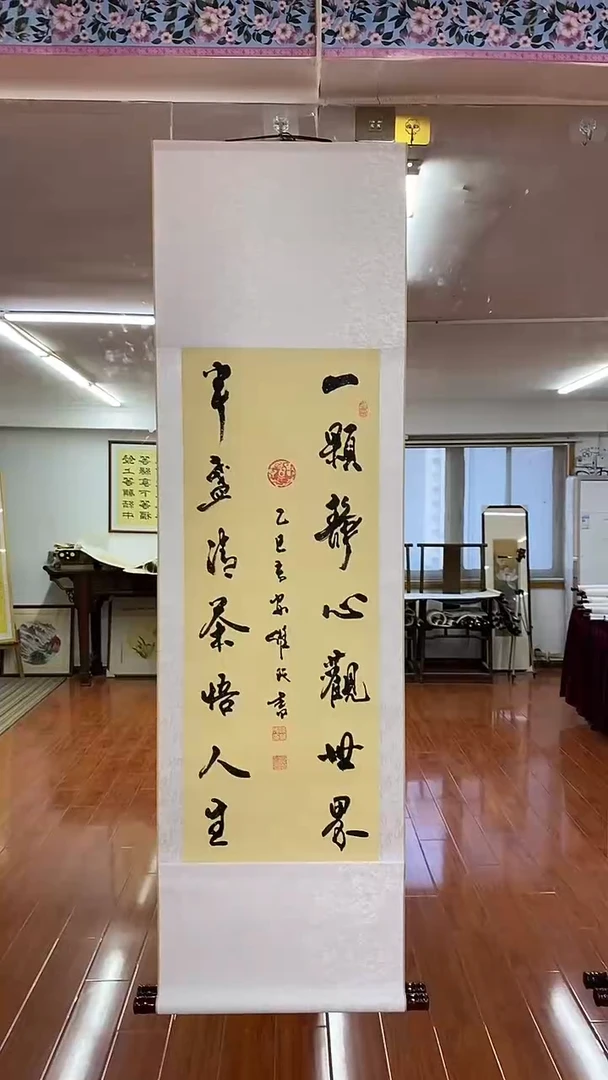 一顆靜心觀世界
半盞清茶悟人生
乙巳
書